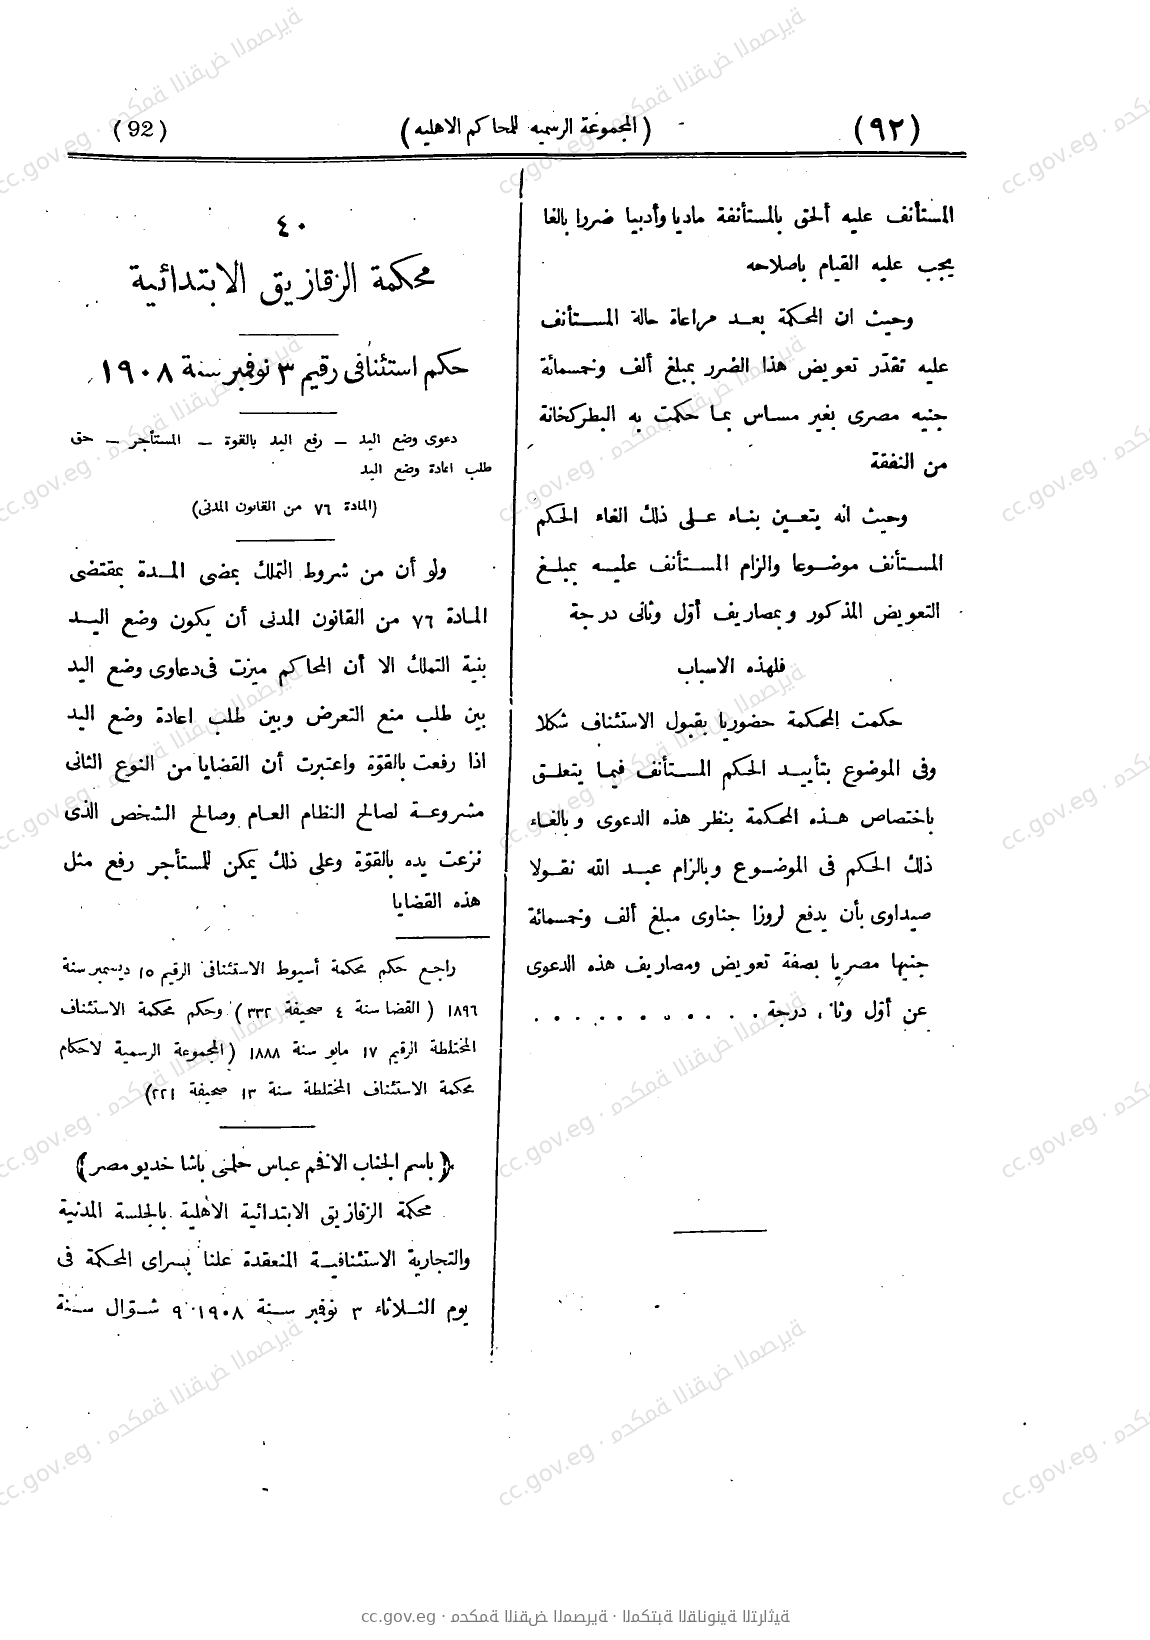 (٩٢)
(المجموعة الرسميه للمحاكم الاهليه)
(92)
المستأنف عليه ألحق بالمستأنفة ماديا وأدبيا ضررا بالغا
يجب عليه القيام باصلاحه
وحيث ان المحكمة بعد مراعاة حالة المستأنف
عليه تقدّر تعويض هذا الضرر بمبلغ ألف وخمسمائة
جنيه مصرى بغير مساس بما حكمت به البطركخانة
من النفقة
وحيث انه يتعين بناء على ذلك الغاء الحكم
المستأنف موضوعا والزام المستأنف عليه بمبلغ
التعويض المذكور وبمصاريف أوّل وثانى درجة
فلهذه الاسباب
حكمت المحكمة حضوريا بقبول الاستئناف شكلا
وفى الموضوع بتأييد الحكم المستأنف فيما يتعلق
باختصاص هذه المحكمة بنظر هذه الدعوى وبالغاء
ذلك الحكم فى الموضوع وبالزام عبد الله نقولا
صيداوى بأن يدفع لروزا جناوى مبلغ ألف وخمسمائة
جنيها مصريا بصفة تعويض ومصاريف هذه الدعوى
عن أوّل وثانى درجة . . . . . . . . . .
٤٠
محكمة الزقازيق الابتدائية
حكم استئنافى رقيم ٣ نوفمبر سنة ١٩٠٨
دعوى وضع اليد – رفع اليد بالقوة – المستأجر – حق
طلب اعادة وضع اليد
(المادة ٧٦ من القانون المدنى)
ولو أن من شروط التملك بمضى المدة بمقتضى
المادة ٧٦ من القانون المدنى أن يكون وضع اليد
بنية التملك الا أن المحاكم ميزت فى دعاوى وضع اليد
بين طلب منع التعرض وبين طلب اعادة وضع اليد
اذا رفعت بالقوّة واعتبرت أن القضايا من النوع الثانى
مشروعة لصالح النظام العام وصالح الشخص الذى
نزعت يده بالقوّة وعلى ذلك يمكن للمستأجر رفع مثل
هذه القضايا
راجع حكم محكمة أسيوط الاستئنافى الرقيم ١٥ ديسمبر سنة
١٨٩٦ (القضا سنة ٤ صحيفة ٣٣٢) وحكم محكمة الاستئناف
المختلطة الرقيم ١٧ مايو سنة ١٨٨٨ (المجموعة الرسمية لاحكام
محكمة الاستئناف المختلطة سنة ١٣ صحيفة ٢٢١)
(باسم الجناب الافخم عباس حلمى باشا خديو مصر)
محكمة الزقازيق الابتدائية الاهلية بالجلسة المدنية
والتجارية الاستئنافية المنعقدة علنا بسراى المحكمة فى
يوم الثلاثاء ٣ نوفمبر سنة ١٩٠٨ ٩ شوّال سنة
cc.gov.eg · محكمة النقض المصرية · المكتبة القانونية التراثية